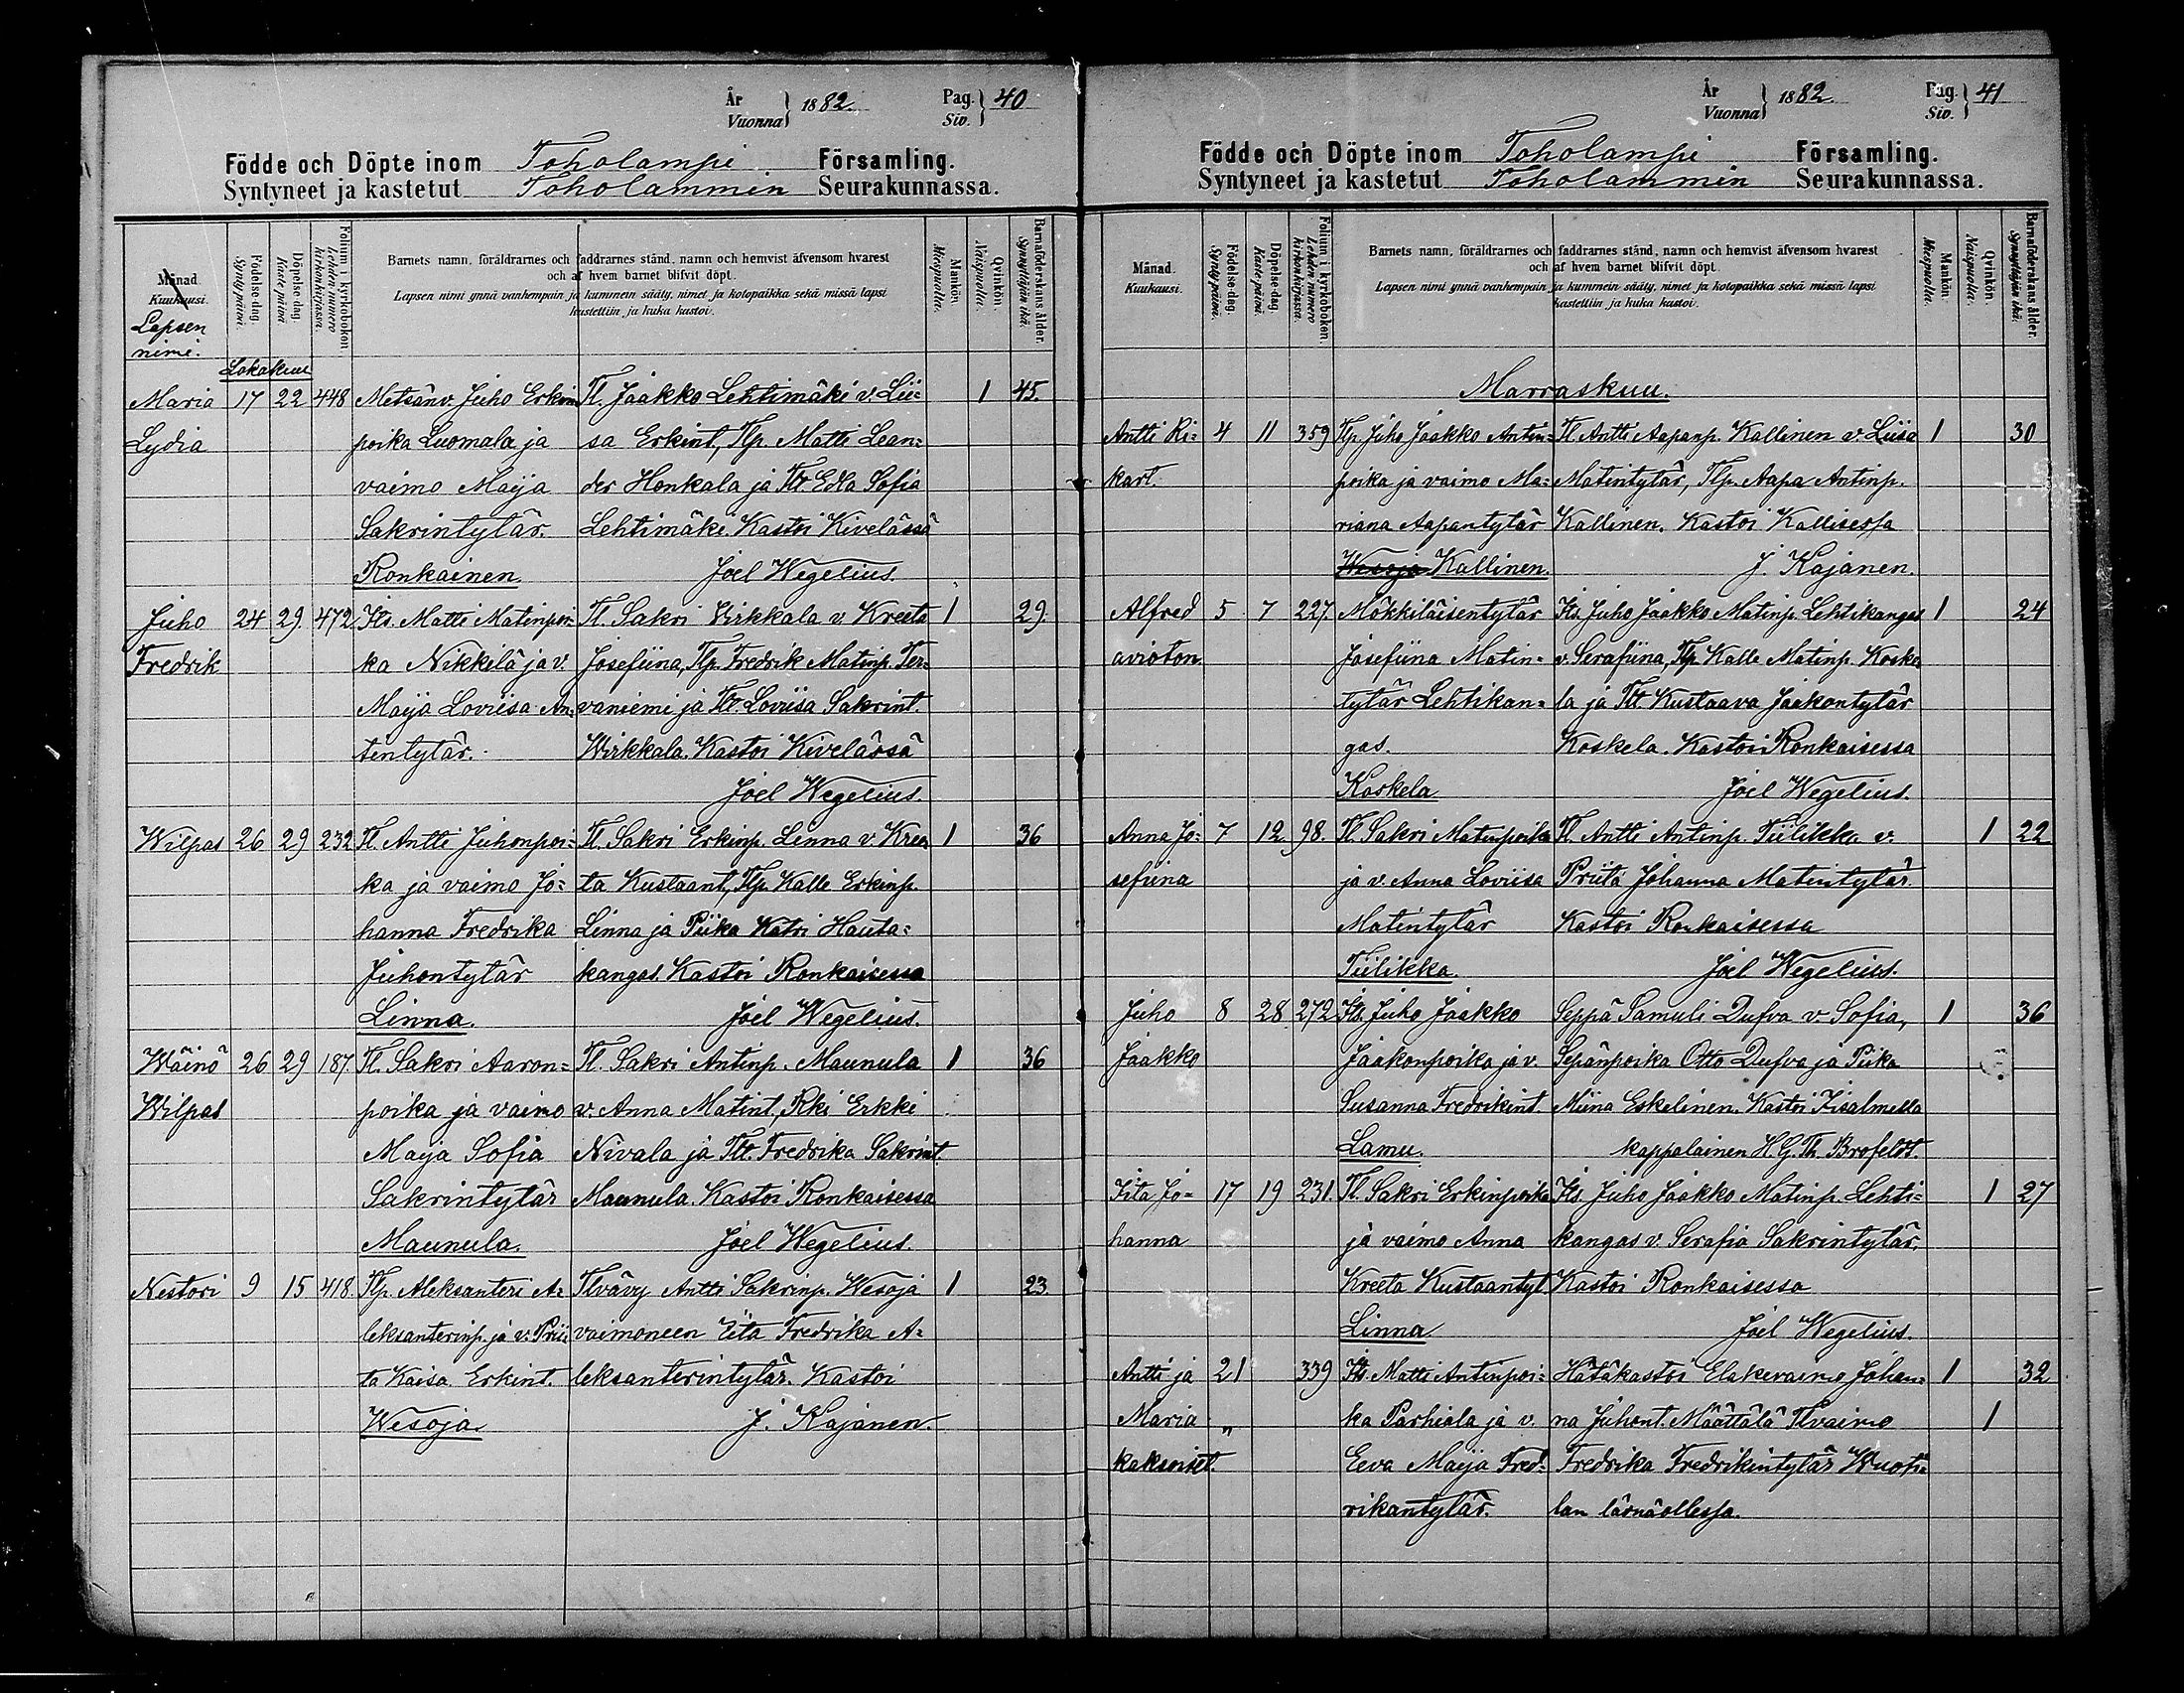 År
Vuonna } 1882.
Pag.
Siv. } 40
Födde och Döpte inom Toholampi Församling.
Syntyneet ja kastetut Toholammin Seurakunnassa.
Månad.
Kuukausi.
Lapsen
nimi.
Födelse-dag.
Synty päivä.
Döpelse-dag.
Kaste päivä
Folium i kyrkoboken
Lehden numero
kirkonkirjassa.
Barnets namn, föräldrarnes och faddrarnes stånd, namn och hemvist äfvensom hvarest
och af hvem barnet blifvit döpt.
Lapsen nimi ynnä vanhempain ja kummein sääty, nimet ja kotopaikka sekä missä lapsi
kastettiin ja kuka kastoi.
Mankön.
Miespuolia.
Qvinkön.
Naispuolia.
Barnaföderskans ålder.
Synnyttäjän ikä.
Lokakuu
Maria 17 22 448 Metsänv. Juho Erkin Tl. Jaakko Lehtimäki v. Lii= 1 45.
Lydia poika Luomala ja sa Erkint, Tlp. Matti Lean=
vaimo Maija der Honkala ja Tlt. Edla Sofia
Sakrintytär. Lehtimäki. Kastoi Kivelässä
Ronkainen Joel Wegelius.
Juho 24 29. 472 Its. Matti Matinpoi= Tl. Sakri Wirkkala v Kreeta 1 29.
Fredrik ka Nikkilä ja v. Josefiina, Tlp. Fredrik Matinp. Ter=
Maija Loviisa An= vaniemi ja Tlt. Loviisa Sakrint.
tentytär. Wirkkala. Kastoi Kivelässä
Joel Wegelius.
Wilpas 26 29 232 Tl. Antti Juhonpoi= Tl. Sakri Erkinp. Linna v. Kree 1 36
ka ja vaimo Jo= ta Kustaant, Tlp. Kalle Erkinp.
hanna Fredrika Linna ja Piika Katri Hauta=
Juhontytär kangas. Kastoi Ronkaisessa
Linna. Joel Wegelius.
Wäinö 26 29 187. Tl. Sakri Aaron= Tl. Sakri Antinp. Maunula 1 36
Wilpas poika ja vaimo v. Anna Matint, Rki Erkki
Maija Sofia Nivala ja Tlt. Fredrika Sakrint.
Sakrintytär Maunula. Kastoi Ronkaisessa
Maunula. Joel Wegelius.
Nestori 9 15 418. Tlp. Aleksanteri A= Tlvävy Antti Sakrinp. Wesoja 1 23.
leksanterinp. ja v. Prii= vaimoneen Eita Fredrika A=
ta Kaisa Erkint. leksanterintytär. Kastoi
Wesoja J. Kajanen.
År
Vuonna } 1882.
Pag.
Siv. } 41
Födde och Döpte inom Toholampi Församling.
Syntyneet ja kastetut Toholammin Seurakunnassa.
Månad.
Kuukausi.
Födelse-dag.
Synty päivä.
Döpelse-dag.
Kaste päivä.
Folium i kyrkoboken.
Lehden numero
kirkonkirjassa.
Barnets namn, föräldrarnes och faddrarnes stånd, namn och hemvist äfvensom hvarest
och af hvem barnet blifvit döpt.
Lapsen nimi ynnä vanhempain ja kummein sääty, nimet ja kotopaikka sekä missä lapsi
kastettiin ja kuka kastoi.
Mankön.
Miespuolia.
Qvinkön.
Naispuolia.
Barnaföderskans ålder.
Synnyttäjän ikä.
Marraskuu.
Antti Ri= 4 11 359 Tlp. Juho Jaakko Antin= Tl. Antti Aapanp. Kallinen v. Liisa 1 30
kart. poika ja vaimo Ma= Matintytär, Tlp. Aapa Antinp.
riana Aapantytär Kallinen. Kastoi Kallisessa
Wesoja Kallinen. J. Kajanen.
Alfred 5 7 227. Mökkiläisentytär Its. Juho Jaakko Matinp. Lehtikangas 1 24
avioton Josefiina Matin= v. Serafiina, Tlp Kalle Matinp. Koske
tytär Lehtikan= la ja Tlt Kustaava Jaakontytär
gas. Koskela. Kastoi Ronkaisessa
Koskela Joel Wegelius.
Anna Jo= 7 12 98. Tl. Sakri Matinpoika Tl. Antti Antinp. Tiilikka v. 1 22
sefiina ja v. Anna Loviisa Priita Johanna Matintytär.
Matintytär Kastoi Ronkaisessa
Tiilikka. Joel Wegelius.
Juho 8 28 272 Its. Juho Jaakko Seppä Samuli Dufva v. Sofia, 1 36
Jaakko Jaakonpoika ja v. Sepänpoika Otto Dufva ja Piika
Susanna Fredrikint. Miina Eskelinen. Kastoi Iisalmella
Lamu. kappalainen H. G. Th. Brofeldt.
Iita Jo= 17 19 231. Tl. Sakri Erkinpoika Its. Juho Jaakko Matinp. Lehti= 1 27
hanna ja vaimo Anna kangas v. Serafia Sakrintytär,
Kreeta Kustaantyt Kastoi Ronkaisessa
Linna Joel Wegelius.
Antti ja 21 339 Its. Matti Antinpoi= Hätäkastoi Elakevaimo Johan= 1 32
Maria „ ka Parhiala ja v. na Juhont. Määttälä Tlvaimo 1
kaksoiset. Eeva Maija Fred= Fredrika Fredrikintytär Wuoti=
rikantytär. lan läsnäollessa.